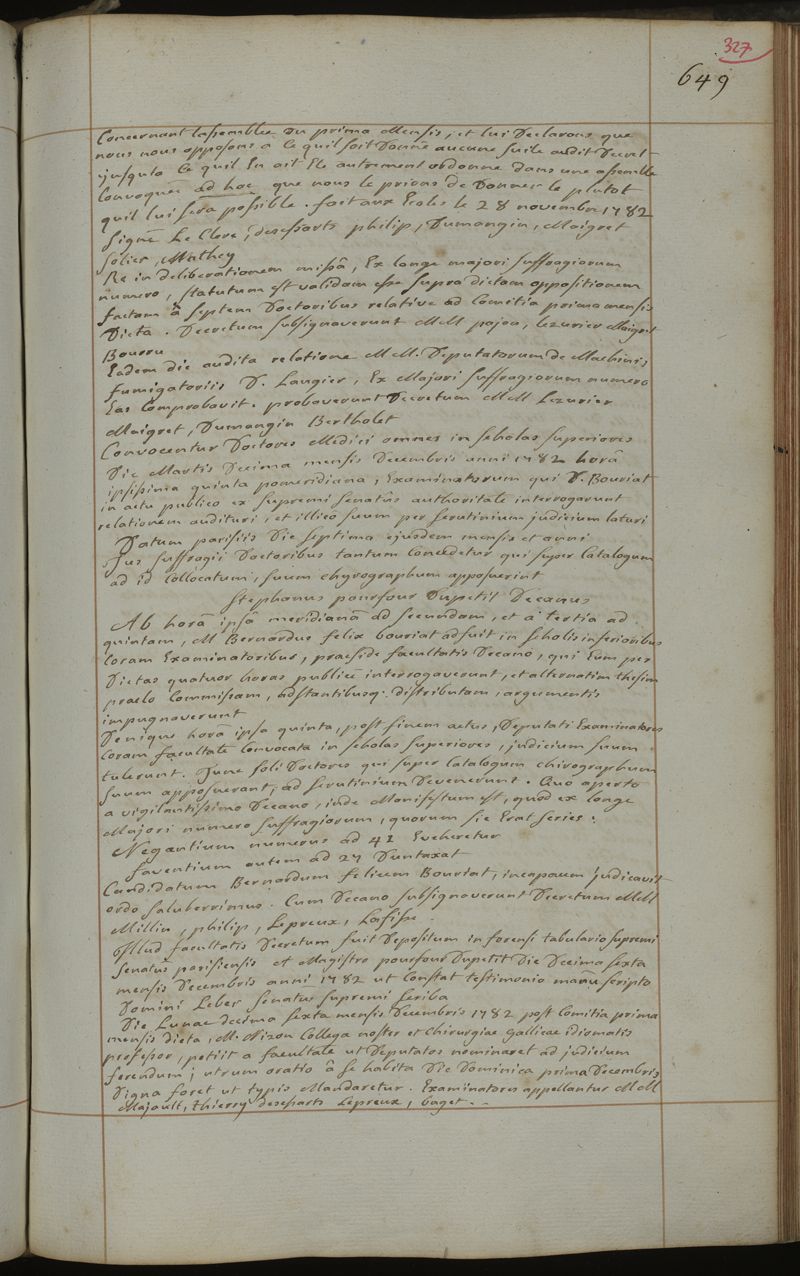 327
649
Concernant lassemblée du prima Mensis, et lui Declarons que
nous nous opposons a ce quil soit Donné aucune suite audit Decret
jusquto ce quil En ait Ete autrement ordonné dans une assemblée
Convoquée ad hoc que nous le prions de Donner le plutot
quil lui sera possible. fait aux Ecoles le 28 novembre 1782
Signé Le Clerc, desessarts philip, Dumangin, Maigret
Solier, Mathey
Re in deliberationem missâ, Ex longe majori suffragiorum
numero, statutum est validam esse supra dictam oppositionem
factam â septem Doctoribus relative ad Comitia prima mensis
Dicta. Decretum subsignaverunt MM pajon, lezurier Maigret
Bourru
Eadem die audita relatione MM. Deputatorum de Machinis
fumigatoriis D. Laugier, Ex Majori suffragiorum numero
Eas Comprobavit. probaverunt Decretum MM Lezurier
Maigret, Dumangin Bertholet
Convocentur Doctores Medici omnes in scholas superiores
Die Martis Decima mensis Decembris anni 1782 horâ
ipsissima quinta pomeridiana, Examinatorum qui D. Bouriat
in actu publico ex supremi senatûs authoritate interrogarunt
relationem audituri, et illico suum per scrutinium judicium laturi
Datum parisiis Die septima ejusdem mensis et anni
Jus suffragii Doctoribus tantum Concedetur qui super Catalogum
ad id Collocatum, suum chyrographum apposuerint
Stephanus pourfour Dupetit Decanus
Ab horâ ipsâ meridianâ ad secundam, et a tertia ad
quintam, M Bernardus felix bouriat adfuit in scholis inferioribus
Coram Examinatoribus, praeside facultatis Decano, qui Eum per
Dictas quatuor horas publicè interrogaverunt, et alternatim thesim
praelo Commissam, adstantibusq. distributam, argumentis
impugnaverunt
Denique hora ipsa quinta, post finem actus, Deputati Examinatores
Coram facultate Convocata in scholas superiores, judicium suum
tulerunt. Tunc soli Doctores qui super Catalogum chirographum
suum apposuerant, ad scrutinium Devenerunt. Quo aperto
a vigilantissimo Decano, inde Manifestum est, quod ex longe
Majori numero suffragiorum, quorum sic Erat series:
Negantium numerus ad 42 Eveheretur
faventium autem ad 27 Duntaxat
Candidatum Bernardum felicem Bouriat, incapacem judicavit
ordo saluberrimus. Cum Decano subsignaverunt Decretum MM
Millin, philip, Lepreux, Lafisse.
Illud facultatis Decretum fuit Depositum in forensi tabulario supremi
Senatus parisiensis a Magistro pourfour Dupetit Die Decima sexta
mensis Decembris anni 1782 ut Constat testimonio manu scripto
Domini Leber senatus supremi scriba
Die Lunae decima sexta mensis Decembris 1782 post Comitia prima
mensis dicta, M. Nizon Collega noster et Chirurgiae gallicae idiomatis
professor, petiit a facultate ut Deputatos nominaret ad judicium
ferendum; utrum oratio â se habita Die Dominica prima Decembris
Digna foret ut typis Mandaretur. Examinatores appellantur MM
Majault, thierry desessarts Lepreux, baget.